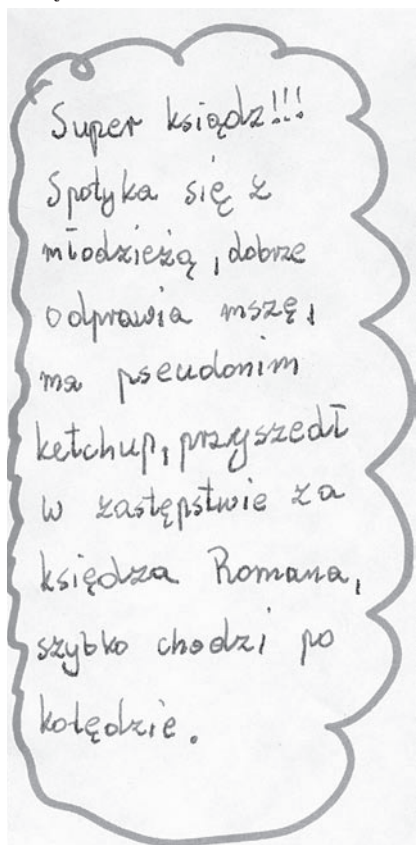 Super ksiądz!!!
Spotyka się z
młodzieżą, dobrze
odprawia mszę,
ma pseudonim
ketchup, przyszedł
w zastępstwie za
księdza Romana,
szybko chodzi po
kolędzie.